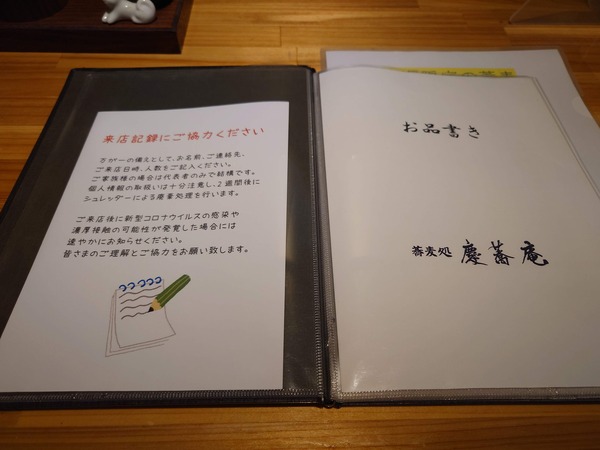 来店記録にご協力ください
万が一の備えとして、お名前、ご連絡先、
ご来店日時、人数をご記入ください。
ご家族様の場合は代表者のみで結構です。
個人情報の取扱いは十分注意し、2週間後に
シュレッダーによる廃棄処理を行います。
ご来店後に新型コロナウイルスの感染や
濃厚接触の可能性が発覚した場合には
速やかにお知らせください。
皆さまのご理解とご協力をお願い致します。
お品書き
蕎麦処 慶蕎庵